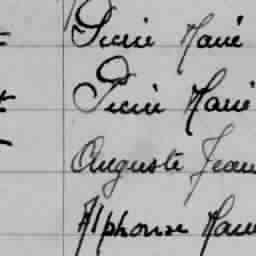 Pierre Marie
Pierre Marie
Auguste Jean
Alphonse Marie